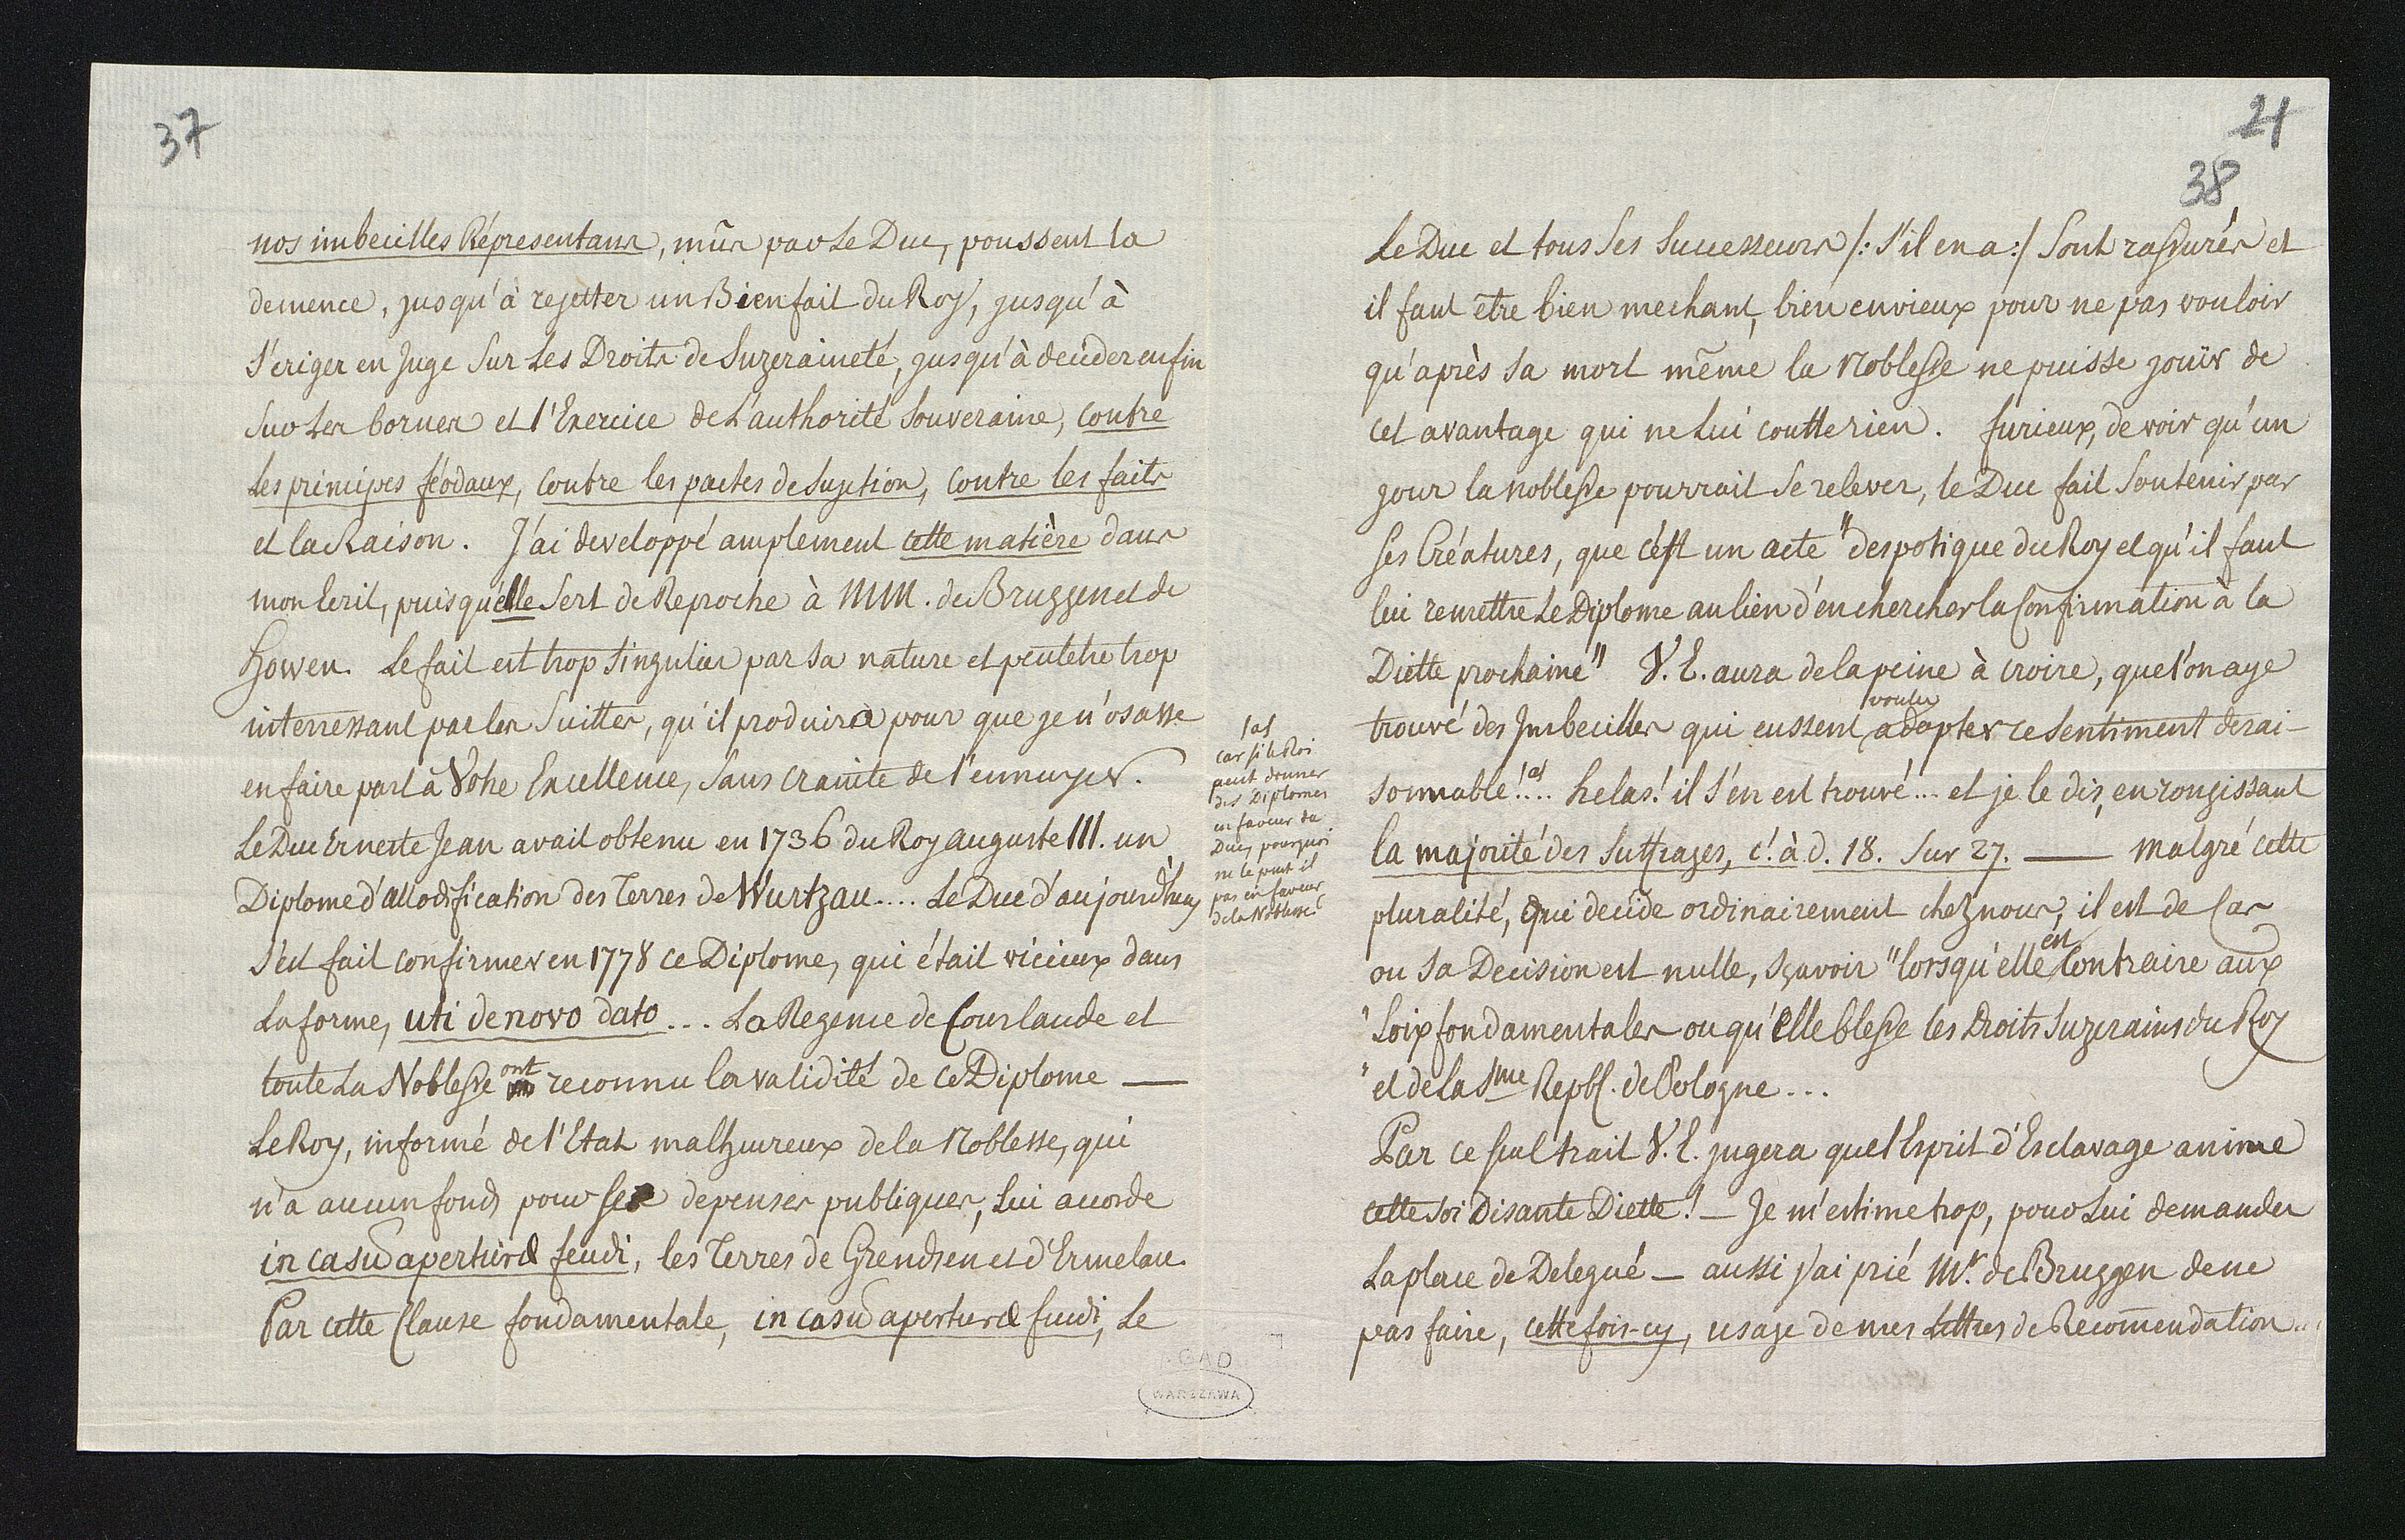 37
nos imbecilles Répresentans, mûs par Le Duc, poussent la
demence, jusqu'à rejetter un Bienfait du Roy, jusqu'à
s'eriger en Juge sur Les Droits de Suzeraineté, jusqu'à decider enfin
sur Les bornes et l'Exercice de L'authorité Souveraine, contre
les principes féodaux, contre les pactes de Sujetion, contre les faits
et la Raison. J'ai developpé amplement cette matière dans
mon Ecrit, puisqu'elle sert de Reproche à MM. de Bruggen et de
Howen. Le fait est trop singulier par sa nature et peutetre trop
interressant par les Suittes, qu'il produira pour que je n'osasse
en faire part à Votre Excellence, sans crainte de l'ennuyer.
Le Duc Erneste Jean avait obtenu en 1736 du Roy Auguste III. un
Diplome d'allodification des Terres de Würtzau.... Le Duc d'aujourd'huy
s'est fait confirmer en 1778 ce Diplome, qui était vicieux dans
La forme, uti de novo dato... La Regence de Courlande et
toute La Noblesse ont reconnu la validité de ce Diplome —
Le Roy, informé de l'Etat malheureux de la Noblesse, qui
n'a aucun fonds pour ses depenses publiques, Lui accorde
in casu aperturæ feudi, les Terres de Grendsen et d'Ermelau.
Par cette Clause fondamentale, in casu aperturæ feudi, Le
car si le Roi
peut donner
des Diplomes
en faveur du
Duc, pourquoi
ne le peut il
pas en faveur
de la Noblesse?
GAD
WARSZAWA
21
38
Le Duc et tous ses Successeurs /: s'il en a :/ sont rassurés et
il faut être bien mechant, bien envieux pour ne pas vouloir
qu'après sa mort même la Noblesse ne puisse jouïr de
cet avantage qui ne Lui coutte rien. furieux, de voir qu'un
jour la noblesse pourrait se relever, le Duc fait soutenir par
ses Créatures, que c'est un acte "despotique du Roy et qu'il faut
lui remettre Le Diplome au lieu d'en chercher la Confirmation à la
Diette prochaine" V. E. aura de la peine à croire, que l'on aye
trouvé des Imbecilles qui eussent voulu adopter ce sentiment derai-
sonnable!... helas! il s'en est trouvé... et je le dis, en rougissant
la majorité des Suffrages, c'. à. d. 18. sur 27. — malgré cette
pluralité, qui decide ordinairement chez nous, il est de Cas
ou sa Decision est nulle, sçavoir "lorsqu'elle est Contraire aux
"Loix fondamentales ou qu'elle blesse les Droits Suzerains du Roy
"et de la Sme Repbl. de Pologne...
Par ce seul trait V. E. jugera quel Esprit d'Esclavage anime
cette soi Disante Diette! — Je m'estime trop, pour Lui demander
La place de Delegué — aussi j'ai prié Mr. de Bruggen de ne
pas faire, cette fois-cy, usage de mes Lettres de Recomendation...